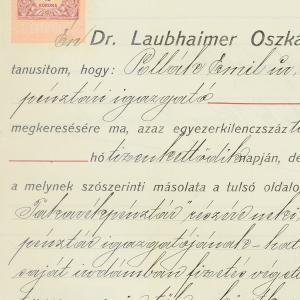 KORONA
Én Dr. Laubhaimer Oszká
tanusitom, hogy: Pollák Emil úr,
pénztári igazgató
megkeresésére ma, azaz egyezerkilenczszáz t
hó tizenkettődik napján, de
a melynek szószerinti másolata a tulsó oldalo
Takarékpénztár" részére neki,
pénztár igazgatójának - hat
saját irodámban fizetés végett